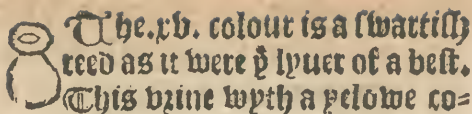 The.xv. colour is a swartish
reed as it were þͤ lyuer of a best.
This vrine wyth a yelowe co=